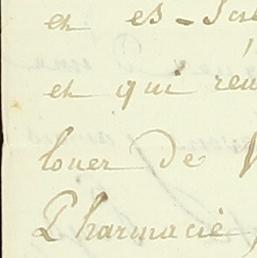 en es-
et qui
louer de
Pharmacie